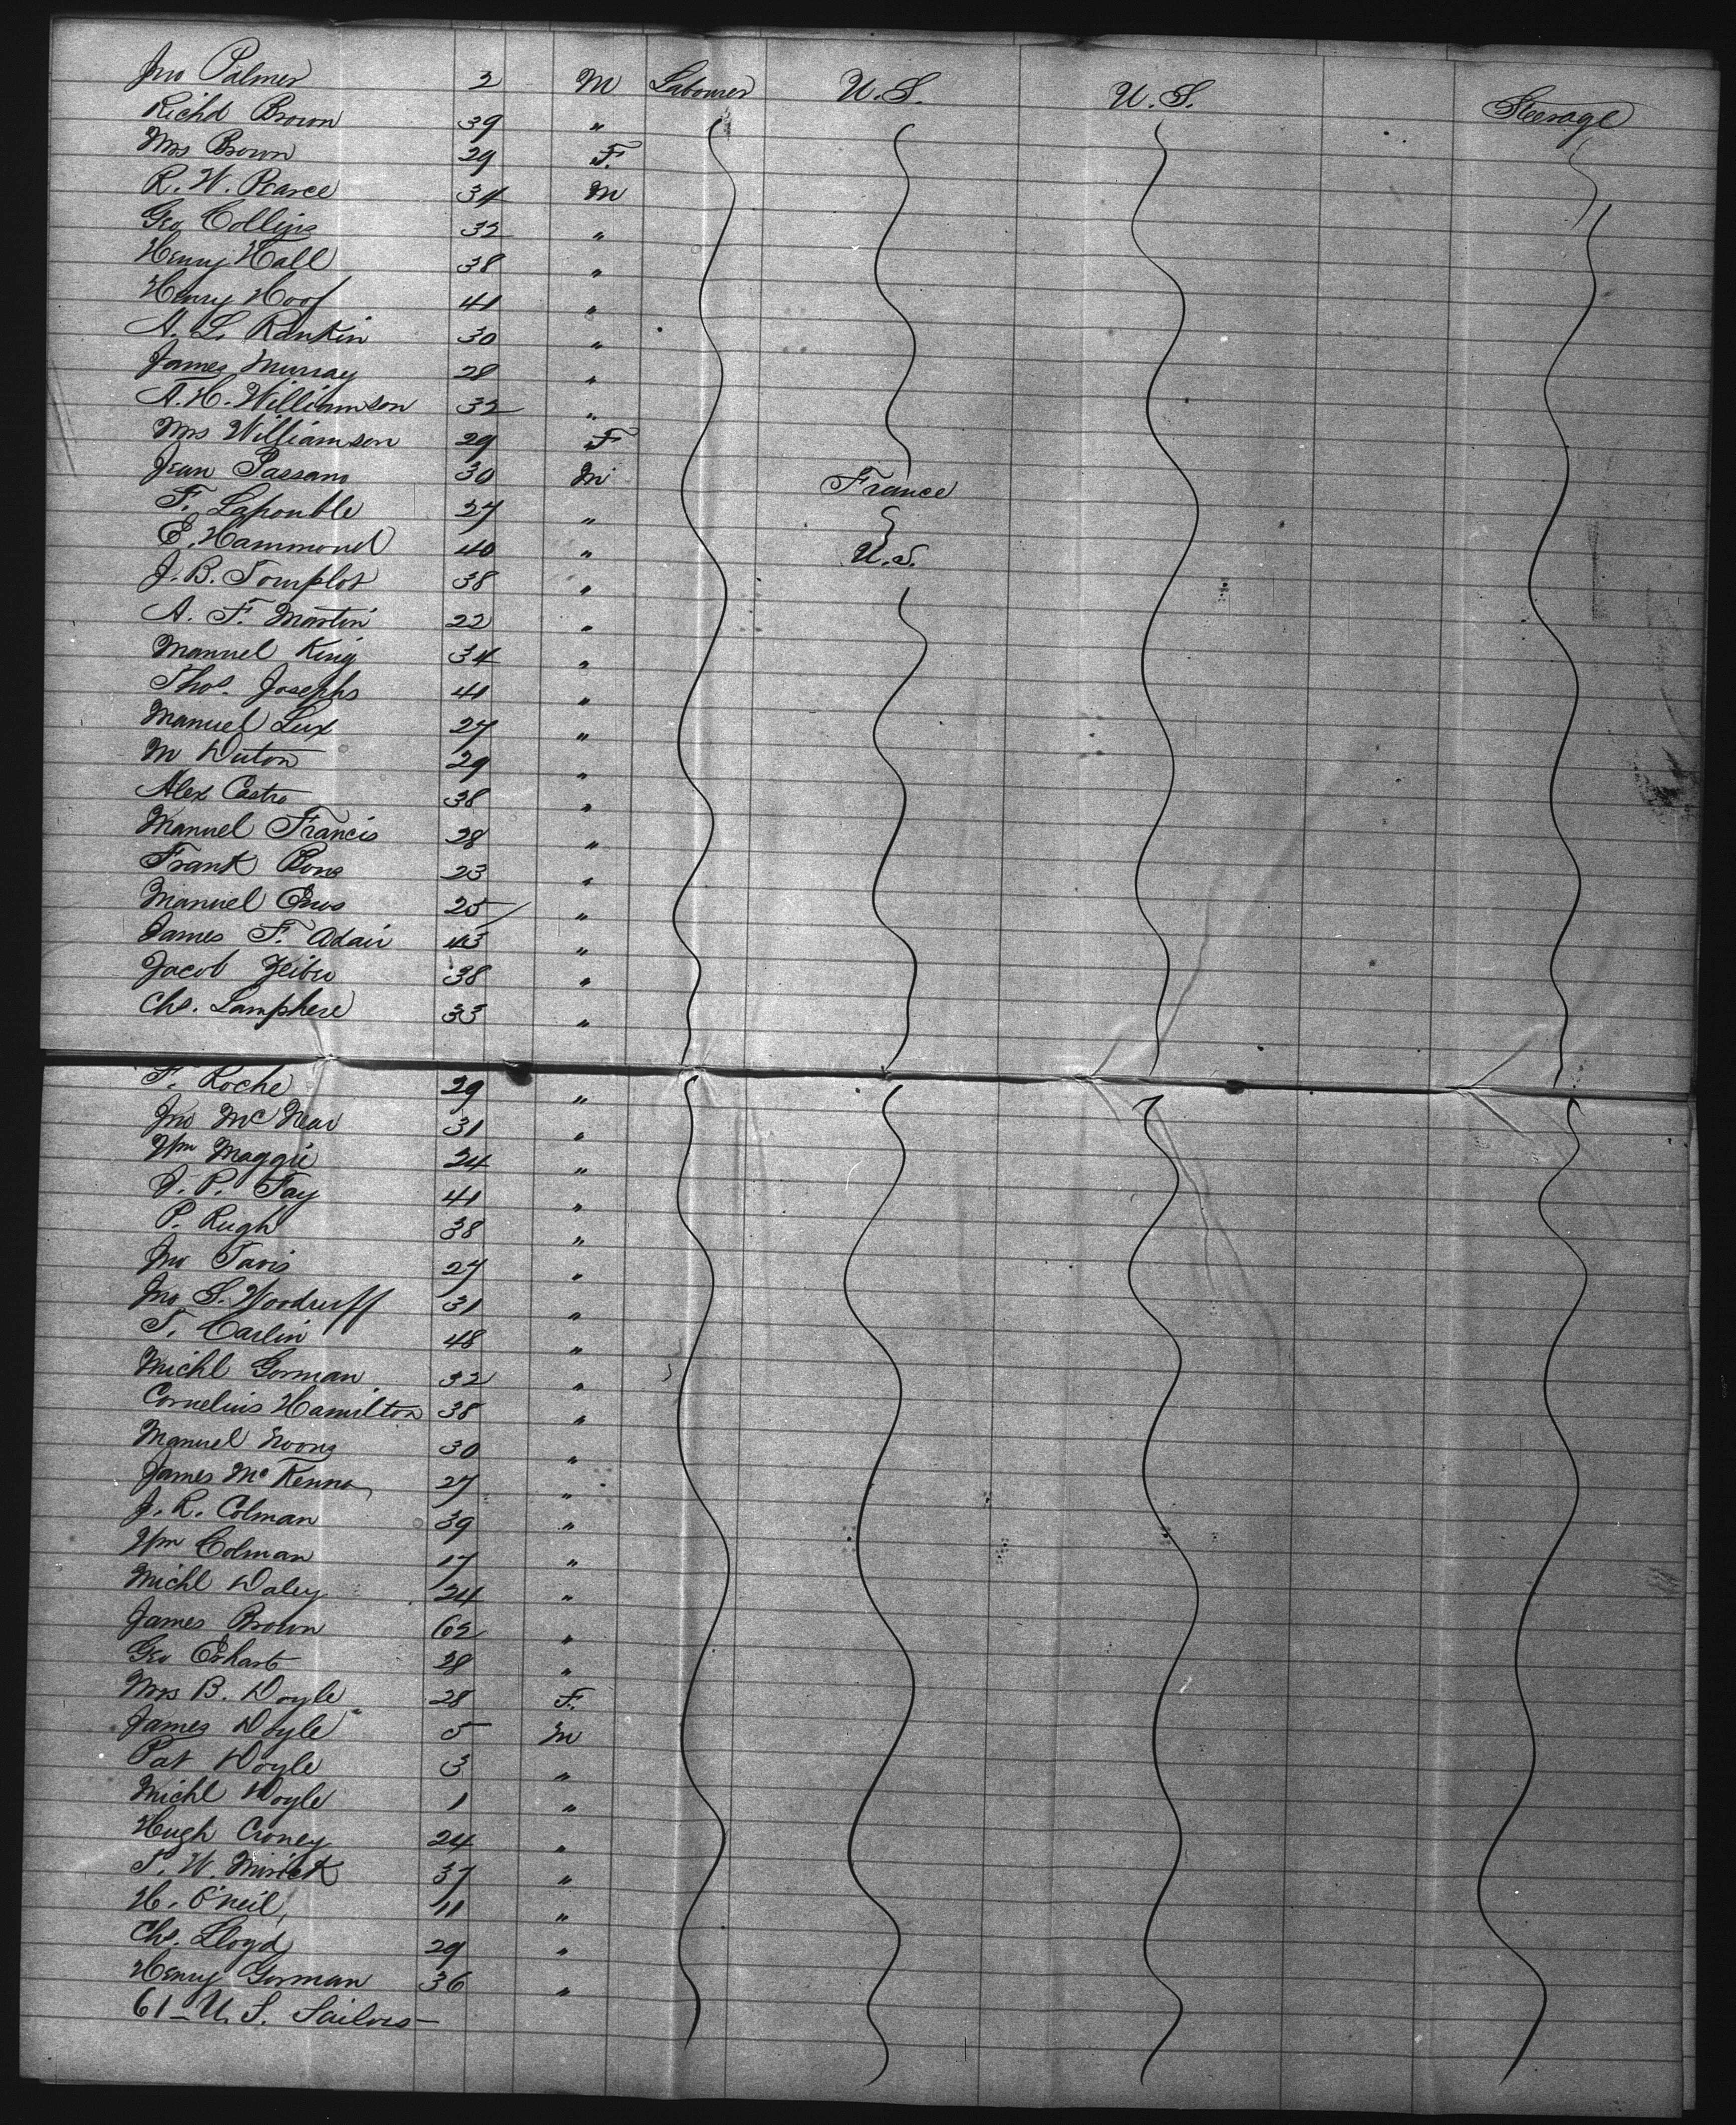 Jno Palmer 2 M Labourer U.S. U.S. Steerage
Richd Brown 39 "
Mrs Brown 29 F.
R. W. Pearce 34 M
Geo Collins 32 "
Henry Hall 38 "
Henry Hoof 41 "
A. L. Rankin 30 "
James Murray 28 "
A. H. Williamson 32 "
Mrs Williamson 29 F
Jean Passano 30 M France
F. Lapouble 27 "
E. Hammond 40 " U.S.
J. B. 38 "
A. F. Martin 22 "
Manuel King 34 "
Thos. Josephs 41 "
Manuel Lux 27 "
M Duton 29 "
Alex Castro 38 "
Manuel Francis 28 "
Frank 23 "
Manuel Enos 25 "
James F. Adair 43 "
Jacob 38 "
Chs. Lamphere 33 "
F. Roche 29 "
Jno McNear 31 "
Wm Maggie 24 "
J. P. Fay 41 "
P. Rugh 38 "
Jno Tavis 27 "
Jno S. Woodruff 31 "
T. Carlin 48 "
Michl Gorman 32 "
Cornelius Hamilton 38 "
Manuel 30 "
James McKenna 27 "
J. R. Colman 39 "
Wm Colman 17 "
Michl Daley 24 "
James Brown 62 "
Geo Erhart 28 "
Mrs B. Doyle 28 F.
James Doyle 5 M
Pat Doyle 3 "
Michl Doyle 1 "
Hugh Croney 24 "
T. W. Mirick 37 "
H. O'Neil 11 "
Chs. Lloyd 29 "
Henry Gorman 36 "
61 - U. S. Sailors -